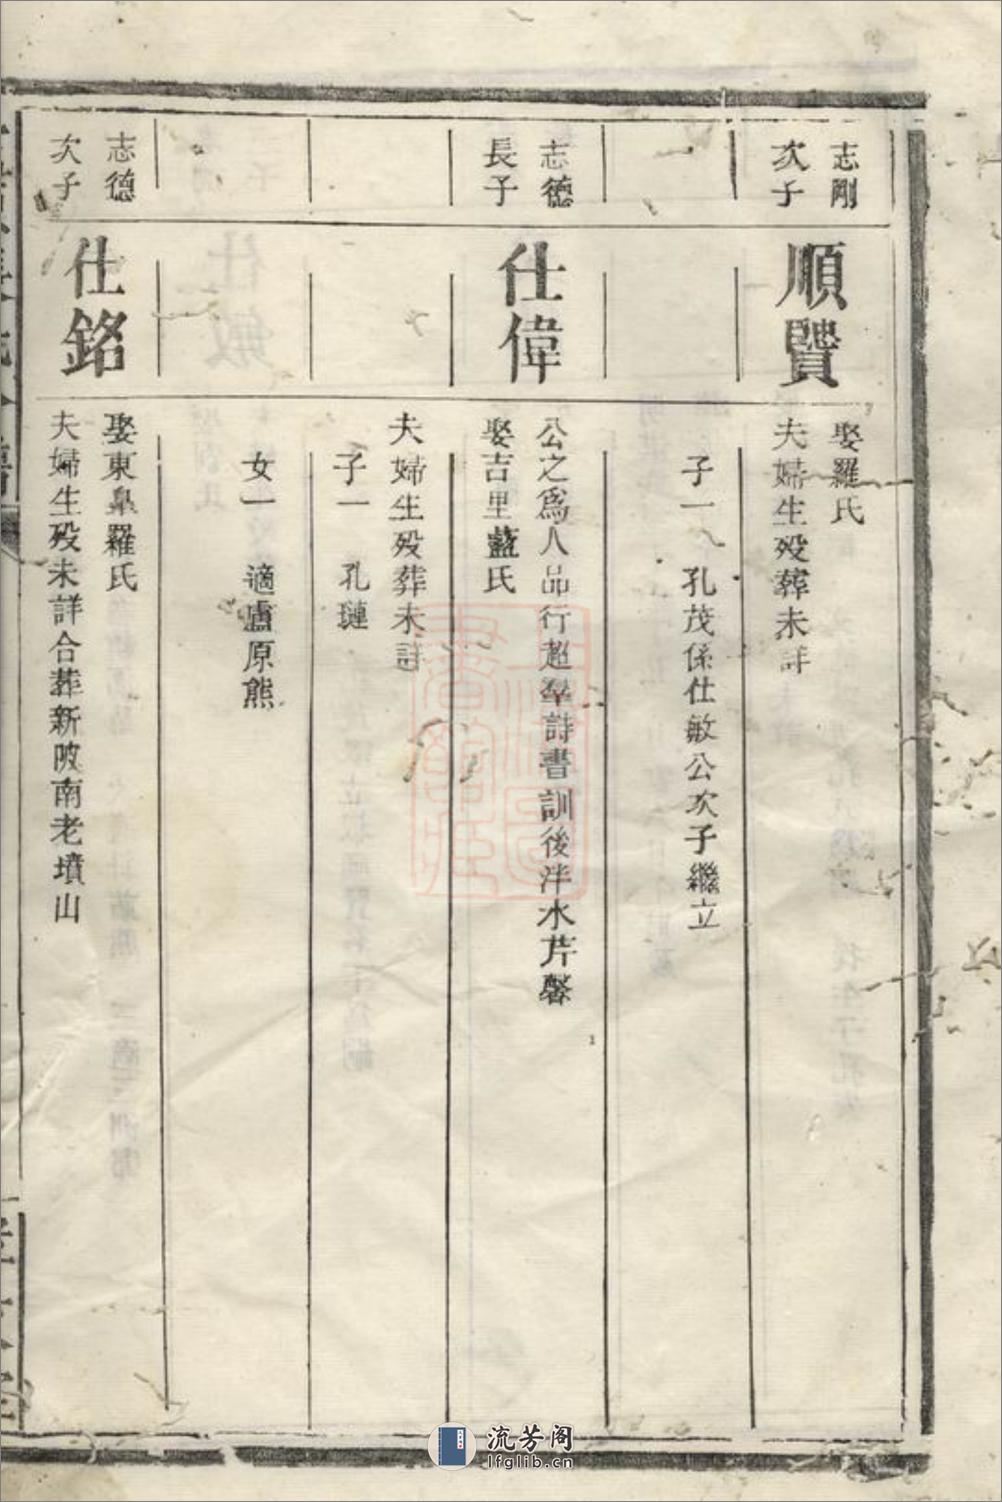 志剛
次子
順贒
娶羅氏
夫婦生殁葬未詳
子一 孔茂係仕敏公次子繼立
志德
長子
仕偉
公之爲人品行超羣詩書訓後泮水芹馨
娶吉里藍氏
夫婦生殁葬未詳
子一 孔璉
女一 適盧原熊
志德
次子
仕銘
娶東臯羅氏
夫婦生殁未詳合葬新陂南老墳山
流芳阁
lfglib.cn